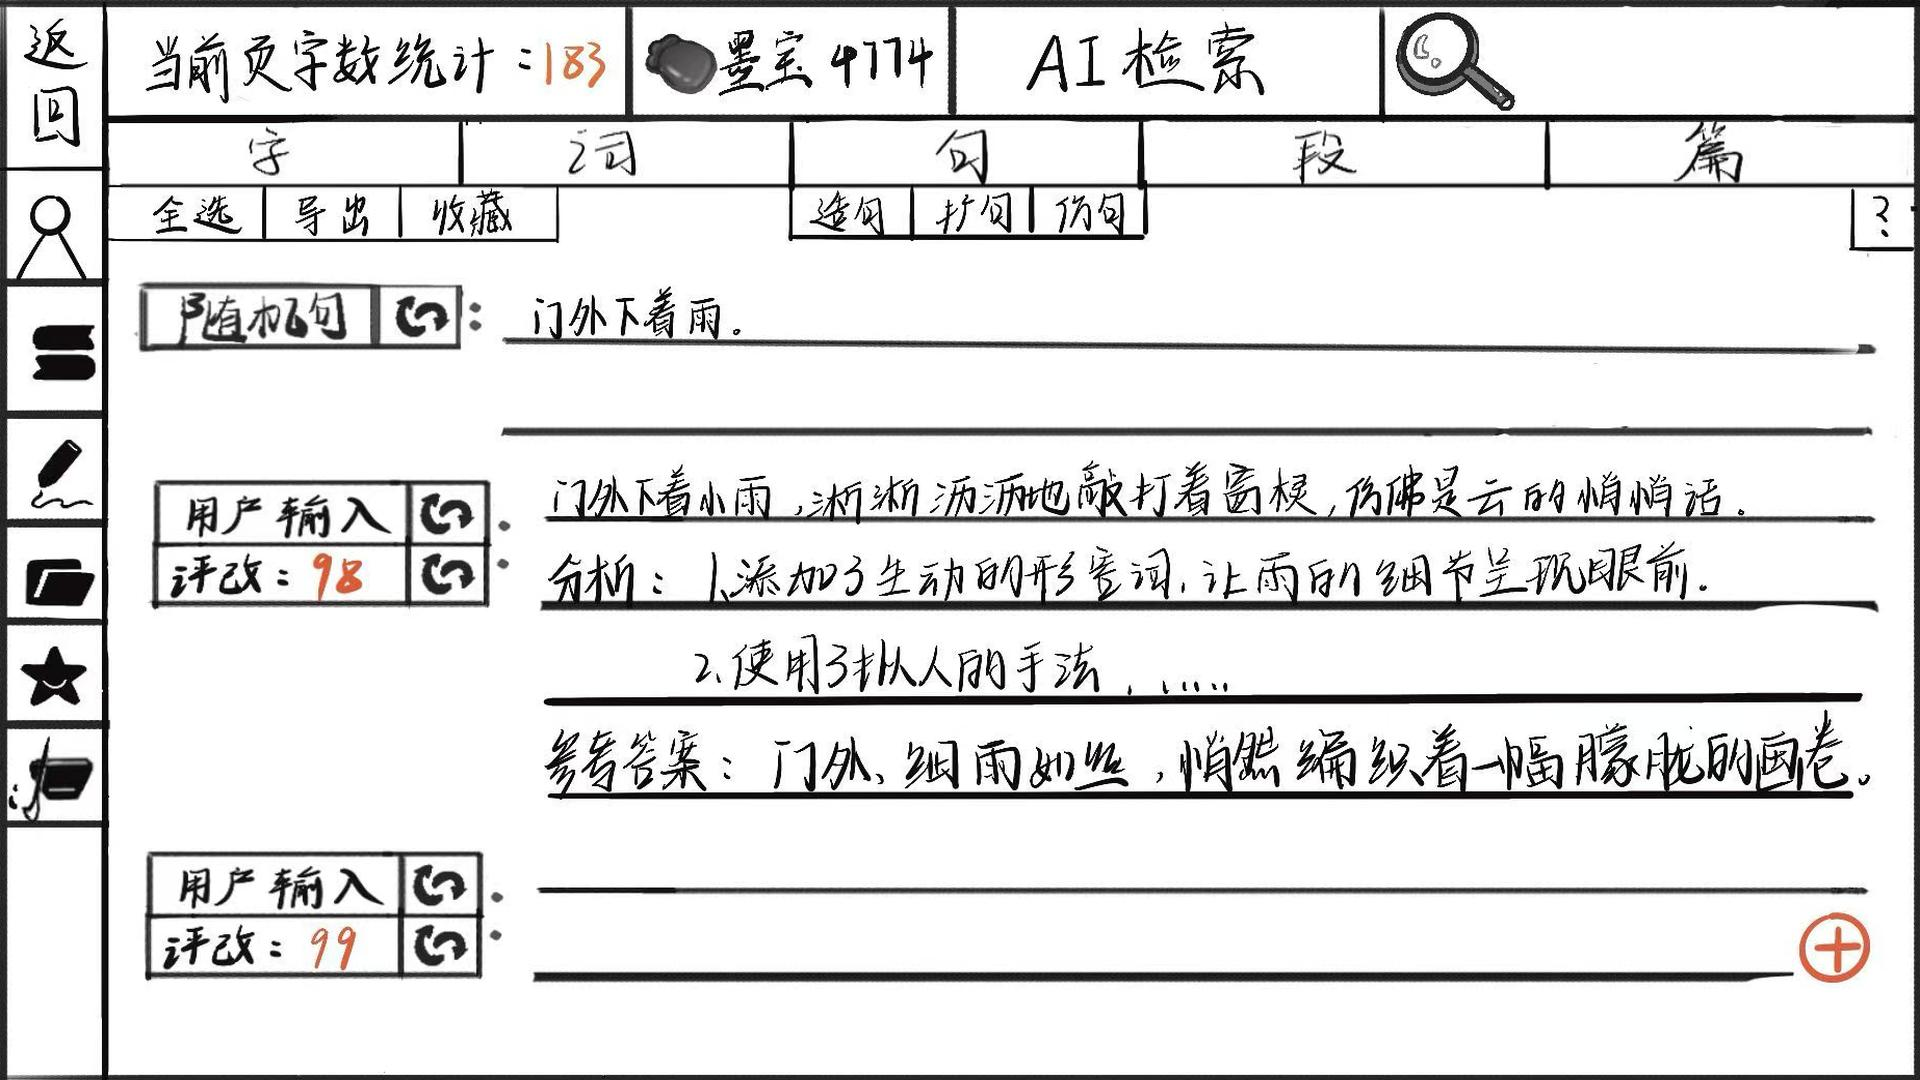 返回
当前页字数统计：183
墨宝 4774
AI 检索
字 词 句 段 篇
全选 导出 收藏 造句 扩句 仿句 ?
随机句： 门外下着雨。
用户输入： 门外下着小雨，淅淅沥沥地敲打着窗棂，仿佛是云的悄悄话。
评改：98： 分析：1、添加了生动的形容词，让雨的细节呈现眼前。
2、使用了拟人的手法，……
参考答案：门外、细雨如丝，悄然编织着一幅朦胧的画卷。
用户输入：
评改：99：